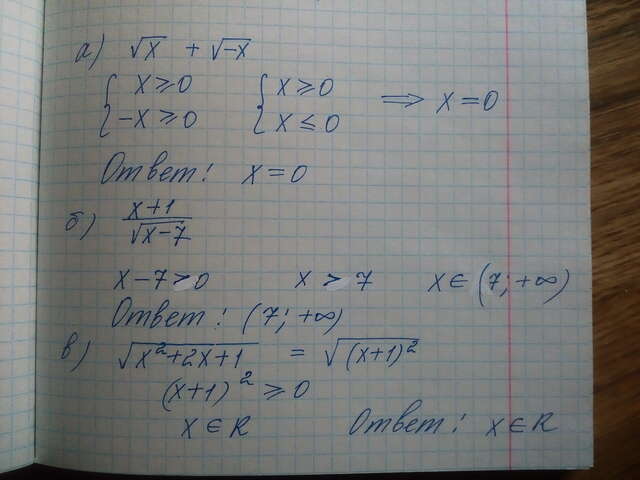 а) √x + √-x
{ x ≥ 0 { x ≥ 0 ⟹ x = 0
-x ≥ 0 x ≤ 0
Ответ: x = 0
б) x+1
√x-7
x-7 > 0 x > 7 x ∈ (7; +∞)
Ответ: (7; +∞)
в) √x²+2x+1 = √(x+1)²
(x+1)² ≥ 0
x ∈ R Ответ: x ∈ R